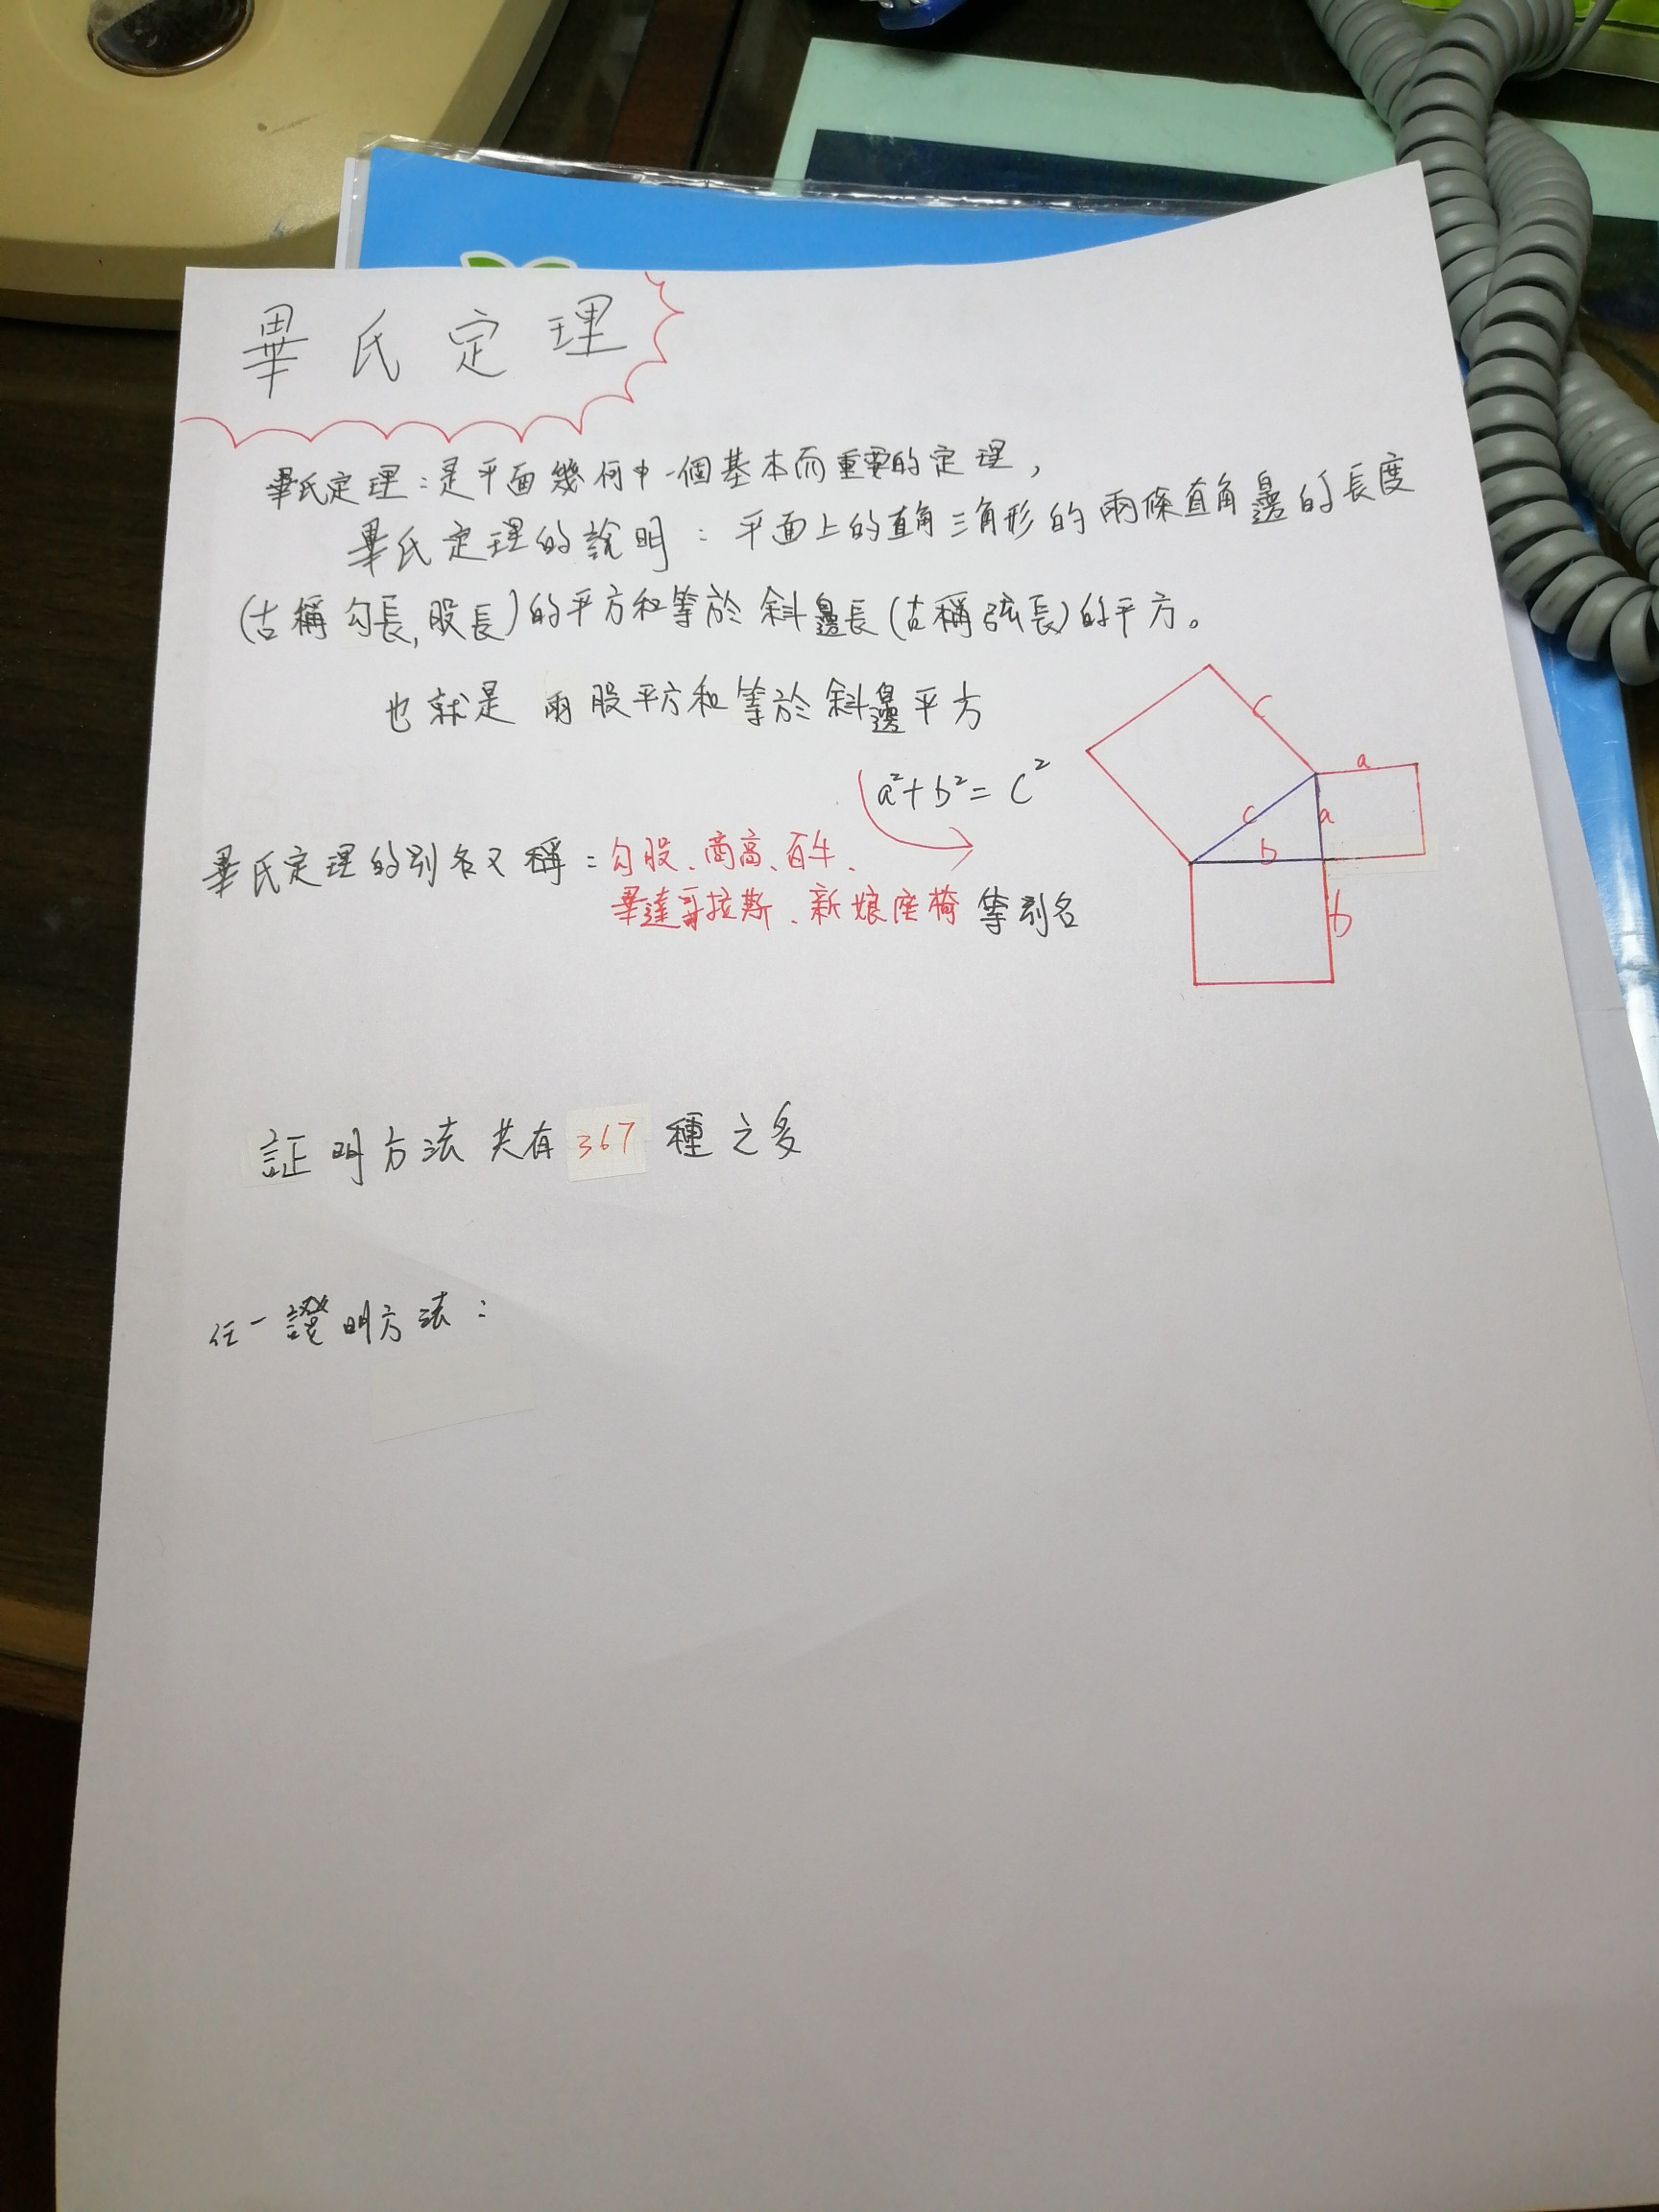 畢氏定理
畢氏定理:是平面幾何中一個基本而重要的定理,
畢氏定理的說明:平面上的直角三角形的兩條直角邊的長度
(古稱勾長,股長)的平方和等於斜邊長(古稱弦長)的平方。
也就是 兩股平方和等於斜邊平方
a²+b²=c²
c
a
c
a
b
b
畢氏定理的別名又稱:勾股、商高、百牛、
畢達哥拉斯、新娘座椅 等別名
証明方法共有 367 種之多
任一證明方法: